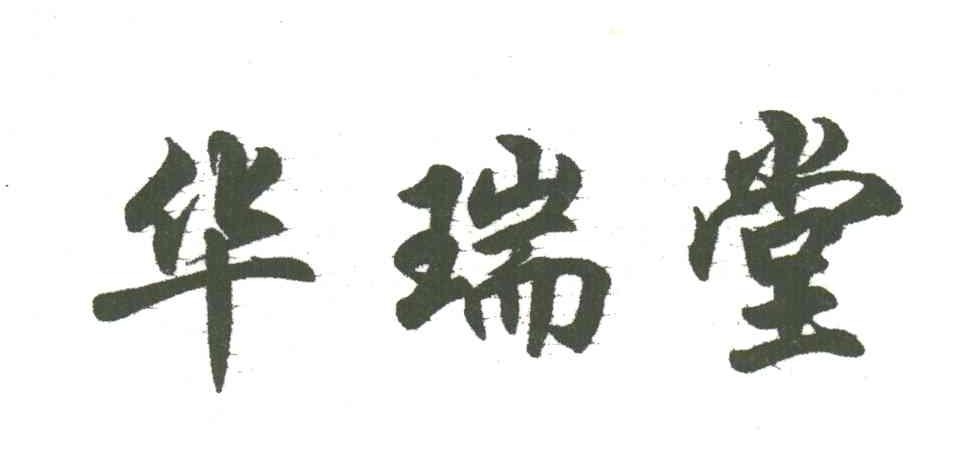 华瑞堂